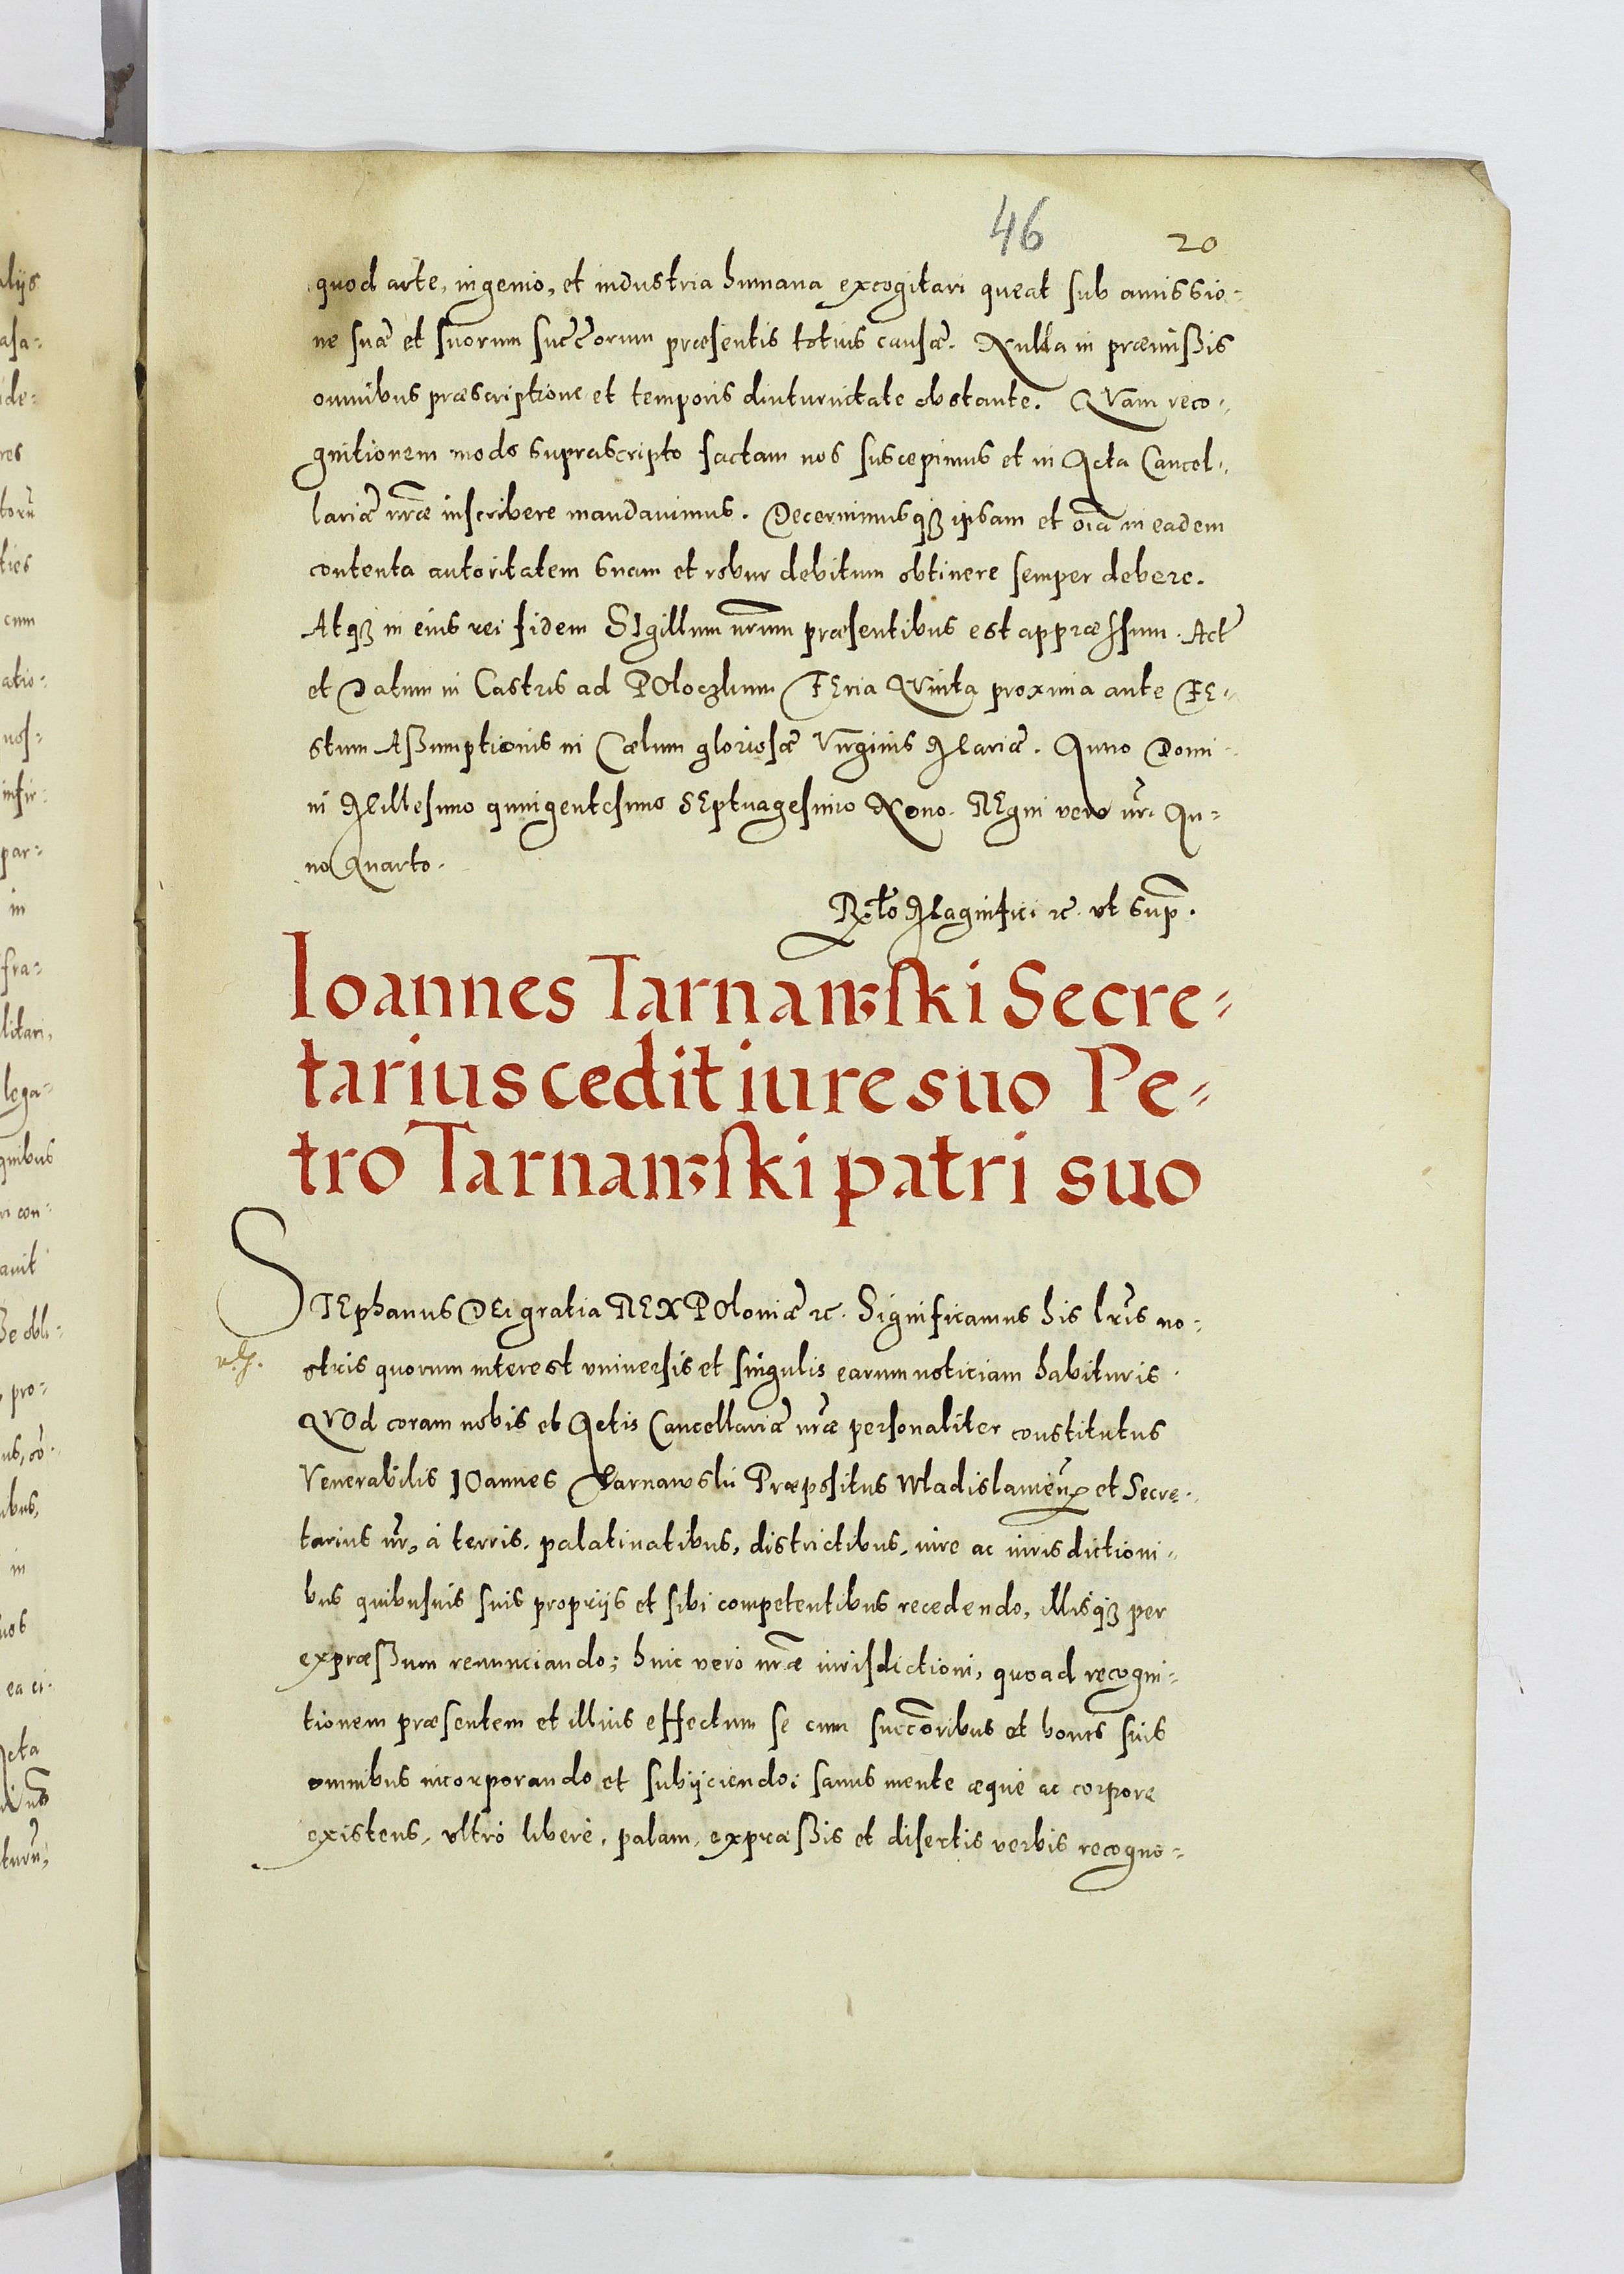 46 20
quod arte, ingenio, et industria humana excogitari queat sub amissio-
ne suæ et suorum succ̃orum præsentis totius causæ. Nulla in præmißis
omnibus præscriptione et temporis diuturnitate obstante. QVam reco-
gnitionem modo suprascripto factam nos suscepimus et in Acta Cancel-
lariæ nr̃æ inscribere mandauimus. Decernimusqȝ ipsam et oĩa in eadem
contenta autoritatem suam et robur debitum obtinere semper debere.
Atqȝ in eius rei fidem SIgillum nr̃um præsentibus est appræssum. Act̃
et Datum in Castris ad POloczkum FEria QVinta proxima ante FE-
stum Aßumptionis in Cælum gloriosæ Virginis Mariæ. Anno Domi-
ni Millesimo quingentesimo SEptuagesimo Nono. REgni vero nr̃i An-
no Quarto.
Rl̃o Magnifici ꝛc. vt sup̃.
Ioannes Tarnawski Secre-
tarius cedit iure suo Pe-
tro Tarnawski patri suo
STEphanus DEi gratia REX POloniæ ꝛc. Significamus his lr̃is no-
stris quorum interest vniuersis et singulis earum noticiam habituris.
QVOd coram nobis et Actis Cancellariæ nr̃æ personaliter constitutus
Venerabilis IOannes Tarnawski Præpositus Wladislauieñ et Secre-
tarius nr̃, à terris, palatinatibus, districtibus, iure ac iurisdictioni-
bus quibusuis suis proprijs et sibi competentibus recedendo, illisqȝ per
expræßum renunciando; huic verò nr̃æ iurisdictioni, quoad recogni-
tionem præsentem et illius effectum se cum succ̃oribus et bonis suis
omnibus incorporando et subijciendo; sanus mente æquè ac corpore
existens, vltrò liberè, palam, expræßis et disertis verbis recogno-